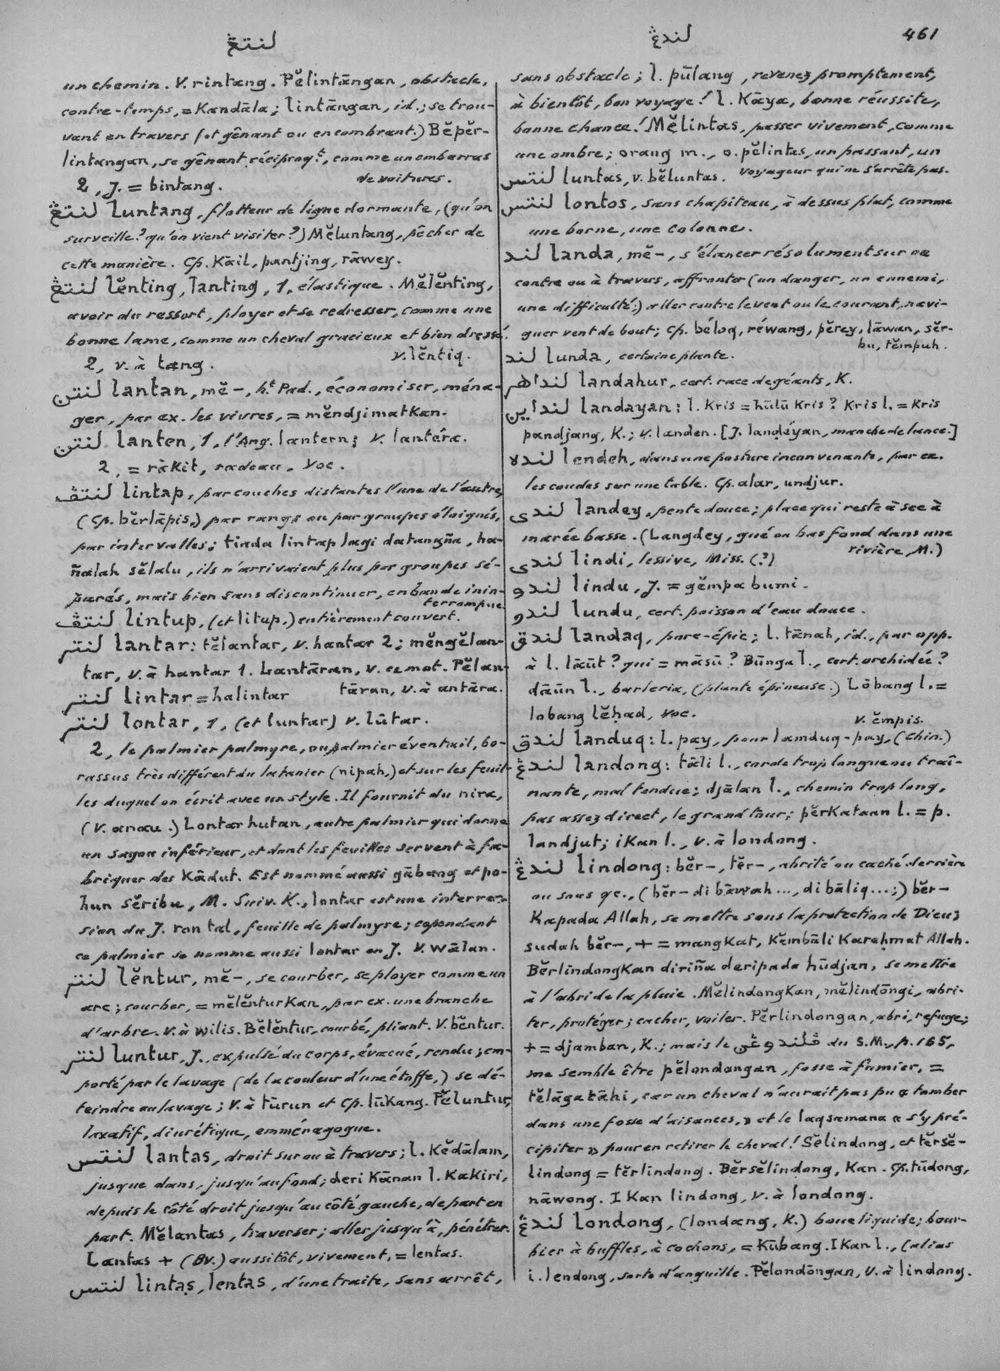 لنتڠ
لندڠ
461
un chemin. V. rintang. Pĕlintāngan, obstacle,
contre-temps, = Kandāla; lintāngan, id.; se trou-
vant en travers (et gênant ou encombrant.) Bĕpĕr-
lintangan, se gênant réciproq.t, comme un embarras
de voitures.
2, J. = bintang.
لنتڠ luntang, flotteur de ligne dormante, (qu'on
surveille? qu'on vient visiter?) Mĕluntang, pêcher de
cette manière. Cp. Kāil, pantjing, rāwey.
لنتڠ lĕnting, lanting, 1, élastique. Mĕlĕnting,
avoir du ressort, ployer et se redresser, comme une
bonne lame, comme un cheval gracieux et bien dressé.
v. lĕntiq.
2, v. à tang.
لنتن lantan, mĕ-, h.t Pad., économiser, ména-
ger, par ex. les vivres, = mĕndjimatkan.
لنتن lanten, 1, l'Ang. lantern; v. lantéra.
2, = rākit, radeau. Voc.
لنتڤ lintap, par couches distantes l'une de l'autre,
(Cp. bĕrlāpis,) par rangs ou par groupes éloignés,
par intervalles; tiada lintap lagi datangña, ha-
ñalah sĕlalu, ils n'arrivaient plus par groupes sé-
parés, mais bien sans discontinuer, en bande inin-
terrompue.
لنتڤ lintup, (et litup.) entièrement couvert.
لنتر lantar: tĕlantar, v. hantar 2; mĕngĕlan-
tar, v. à hantar 1. Lantāran, v. ce mot. Pĕlan-
tāran, v. à antāra.
لنتر lintar = halintar
لنتر lontar, 1, (et luntar) v. lūtar.
2, le palmier palmyre, ou palmier éventail, bo-
rassus très différent du latanier (nipah,) et sur les feuil-
les duquel on écrit avec un style. Il fournit du nira,
(v. anau.) Lontar hutan, autre palmier qui donne
un sagou inférieur, et dont les feuilles servent à fa-
briquer des Kādut. Est nommé aussi gābang et po-
hun sĕribu, M. Suiv. K., lontar est une interver-
sion du J. ron tal, feuille de palmyre; cependant
ce palmier se nomme aussi lontar en J. V. wālan.
لنتر lĕntur, mĕ-, se courber, se ployer comme un
arc; courber, = mĕlĕnturkan, par ex. une branche
d'arbre. V. à wilis. Bĕlĕntur, courbé, pliant. V. bĕntur.
لنتر luntur, J., expulsé du corps, évacué, rendu; em-
porté par le lavage (de la couleur d'une étoffe,) se dé-
teindre au lavage; V. à tūrun et Cp. lūkang. Pĕluntur,
laxatif, diurétique, emménagogue.
لنتس lantas, droit sur ou à travers; l. Kĕdālam,
jusque dans, jusqu'au fond; deri Kānan l. Kakiri,
depuis le côté droit jusqu'au côté gauche, de part en
part. Mĕlantas, traverser; aller jusqu'à, pénétrer.
Lantas + (Bv.) aussitôt, vivement, = lentas.
لنتس lintas, lentas, d'une traite, sans arrêt,
sans obstacle; l. pūlang, revenez promptement,
à bientôt, bon voyage! l. Kāya, bonne réussite,
bonne chance! Mĕlintas, passer vivement, comme
une ombre; orang m., o. pĕlintas, un passant, un
voyageur qui ne s'arrête pas.
لنتس luntas, v. bĕluntas.
لنتس lontos, sans chapiteau, à dessus plat, comme
une borne, une colonne.
لند landa, mĕ-, s'élancer résolument sur ou
contre ou à travers, affronter (un danger, un ennemi,
une difficulté;) aller contre le vent ou le courant, navi-
guer vent de bout; Cp. béloq, réwang, pĕrey, lāwan, sĕr-
bu, tĕmpuh.
لند lunda, certaine plante.
لنداهر landahur, cert. race de géants, K.
لنداين landayan: l. Kris = hūlū Kris? Kris l. = Kris
pandjang, K.; v. landen. [J. landéyan, manche de lance.]
لنده lendeh, dans une posture inconvenante, par ex.
les coudes sur une table. Cp. alar, undjur.
لندی landey, pente douce; place qui reste à sec à
marée basse. (Langdey, gué ou bas fond dans une
rivière, M.)
لندی lindi, lessive, Miss. (?)
لندو lindu, J. = gĕmpa bumi.
لندو lundu, cert. poisson d'eau douce.
لندق landaq, porc-épic; l. tānah, id., par opp.
à l. lāūt? qui = māsū? Būnga l., cert. orchidée?
dāūn l., barleria, (plante épineuse.) Lōbang l. =
lobang lĕhad, voc.
v. ĕmpis.
لندق landuq: l. pay, pour lamduq-pay, (Chin.)
لندڠ landong: tāli l., corde trop longue ou traî-
nante, mal tendue; djālan l., chemin trop long,
pas assez direct, le grand tour; pĕrKataan l. = p.
landjut; iKan l., v. à londong.
لندڠ lindong: bĕr-, tĕr-, abrité ou caché derrière
ou sous qc., (bĕr- di bāwah ..., di bāliq ...;) bĕr-
Kapada Allah, se mettre sous la protection de Dieu;
sudah bĕr-, + = mangKat, Kĕmbāli Karahmat Allah.
BĕrlindongKan diriña deripada hūdjan, se mettre
à l'abri de la pluie. MĕlindongKan, mĕlindōngi, abri-
ter, protéger; cacher, voiler. Pĕrlindongan, abri, refuge;
+ = djamban, K.; mais le ڤلندوڠن du S.M., p. 165,
me semble être pĕlondongan, fosse à fumier, =
tĕlāga tāhi, car un cheval n'aurait pas pu « tomber
dans une fosse d'aisances, » et le laqsamana « s'y pré-
cipiter » pour en retirer le cheval! Sĕlindong, et tĕrsĕ-
lindong = tĕrlindong. Bĕrsĕlindong, Kan. Cp. tūdong,
nāwong. IKan lindong, v. à londong.
لندڠ londong, (londang, K.) boue liquide; bour-
bier à buffles, à cochons, = Kūbang. IKan l., (alias
i. lendong, sorte d'anguille. Pĕlondōngan, v. à lindong.